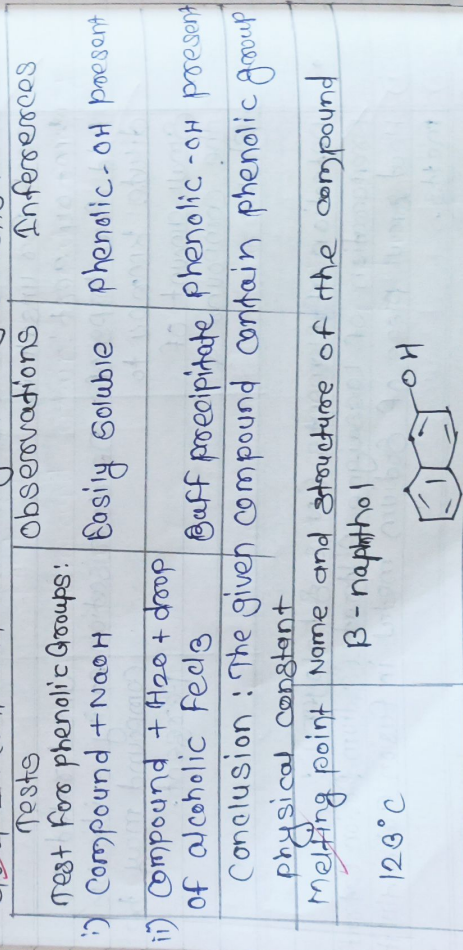 Tests Observations Inferences
Test for phenolic Groups:
i) Compound + NaOH Easily soluble phenolic-OH present
ii) Compound + H2O + drop
of alcoholic FeCl3 Buff precipitate phenolic-OH present
Conclusion : The given compound contain phenolic group
physical constant
Melting point Name and structure of the compound
β-naphthol
123°C
OH